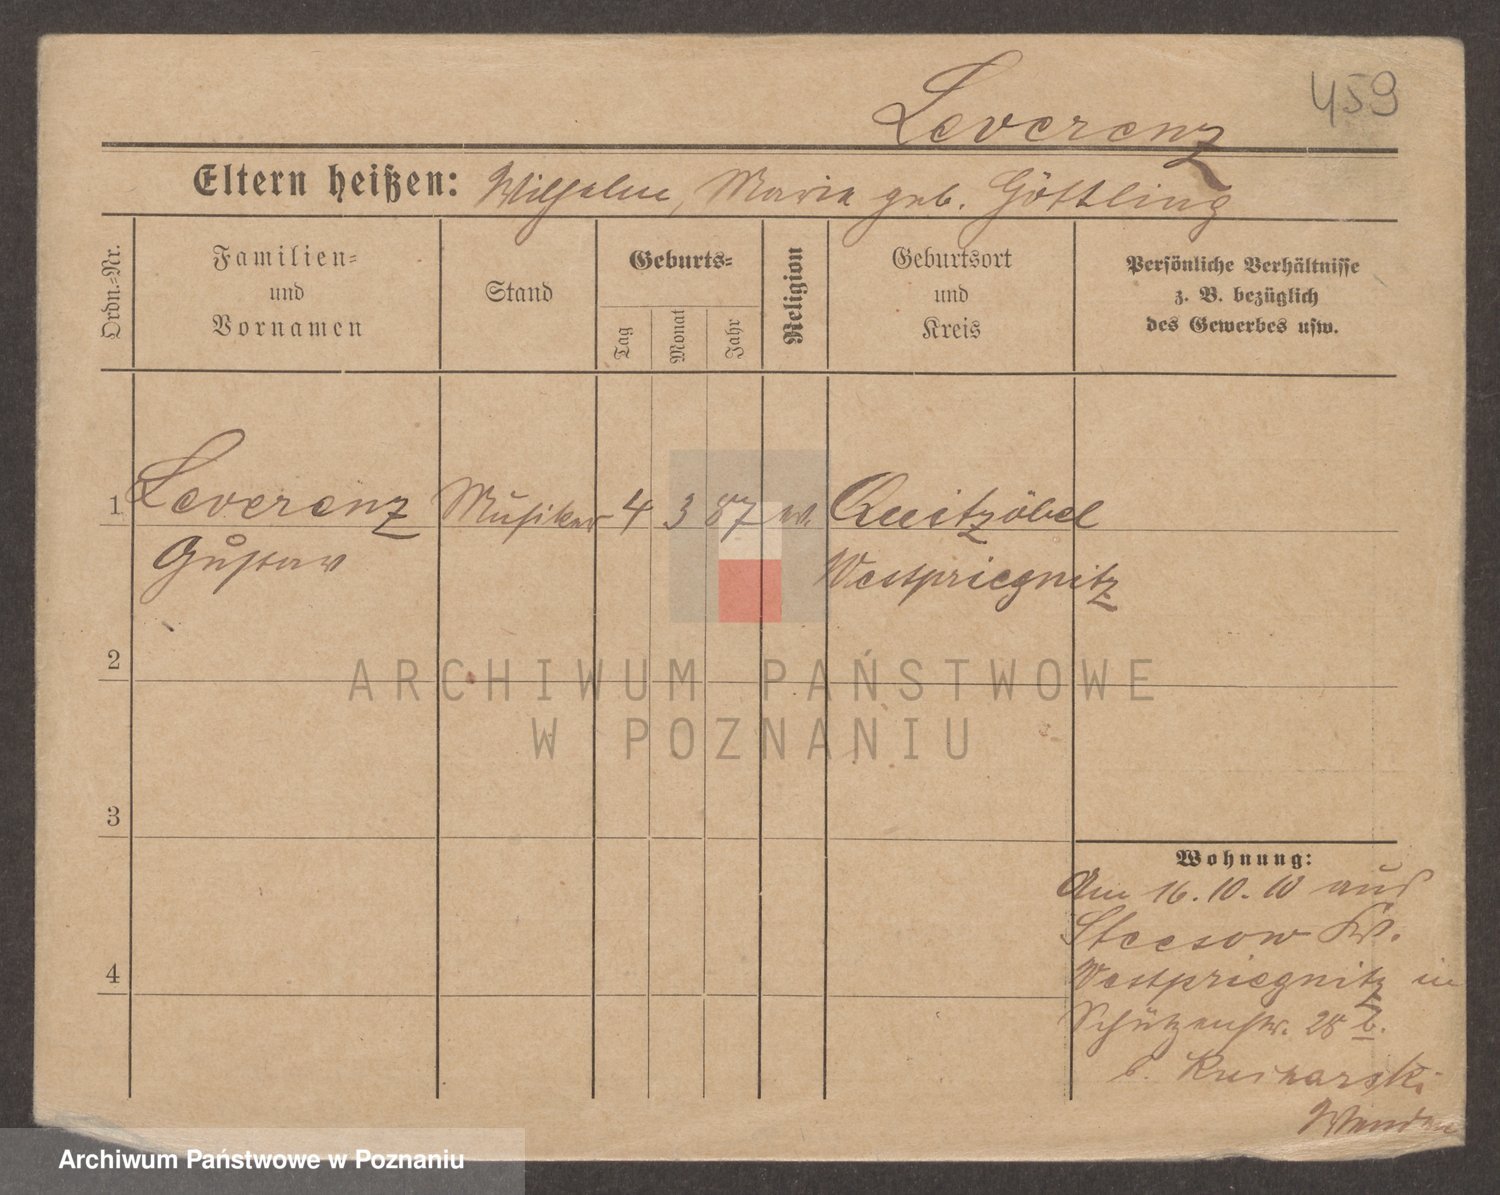 459
Leverenz
Eltern heißen: Wilhelm, Marie geb. Göttling
Ordn.=Nr.
Familien=
und
Vornamen
Stand
Geburts=
Tag
Monat
Jahr
Religion
Geburtsort
und
Kreis
Persönliche Verhältnisse
z. B. bezüglich
des Gewerbes usw.
1 Leverenz Musiker 4 3 87 ev. Quitzöbel
Gustav Westpriegnitz
2
ARCHIWUM PAŃSTWOWE
W POZNANIU
3
Wohnung:
Am 16.10.10 aus
Steesow Kr.
4
Westpriegnitz in
Schützenstr. 28 b.
b.
Wenden
Archiwum Państwowe w Poznaniu